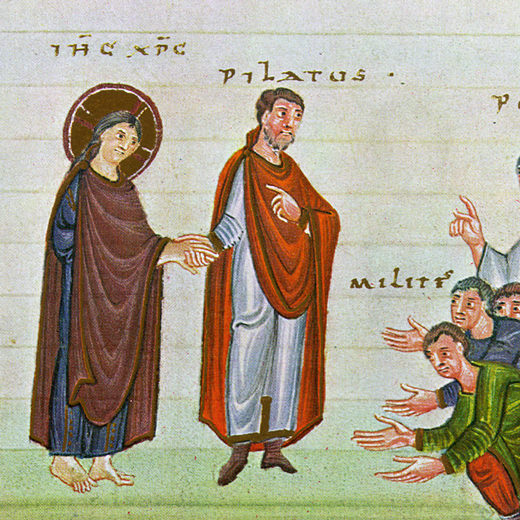 IH̅C XP̅C
PILATUS ·
MILITES